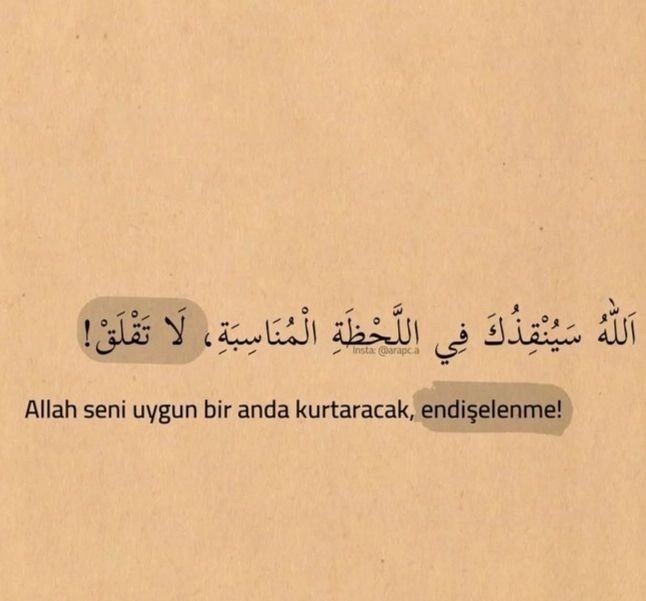 اَللّٰهُ سَيُنْقِذُكَ فِي اللَّحْظَةِ الْمُنَاسِبَةِ، لَا تَقْلَقْ!
Insta: @arapc.a
Allah seni uygun bir anda kurtaracak, endişelenme!